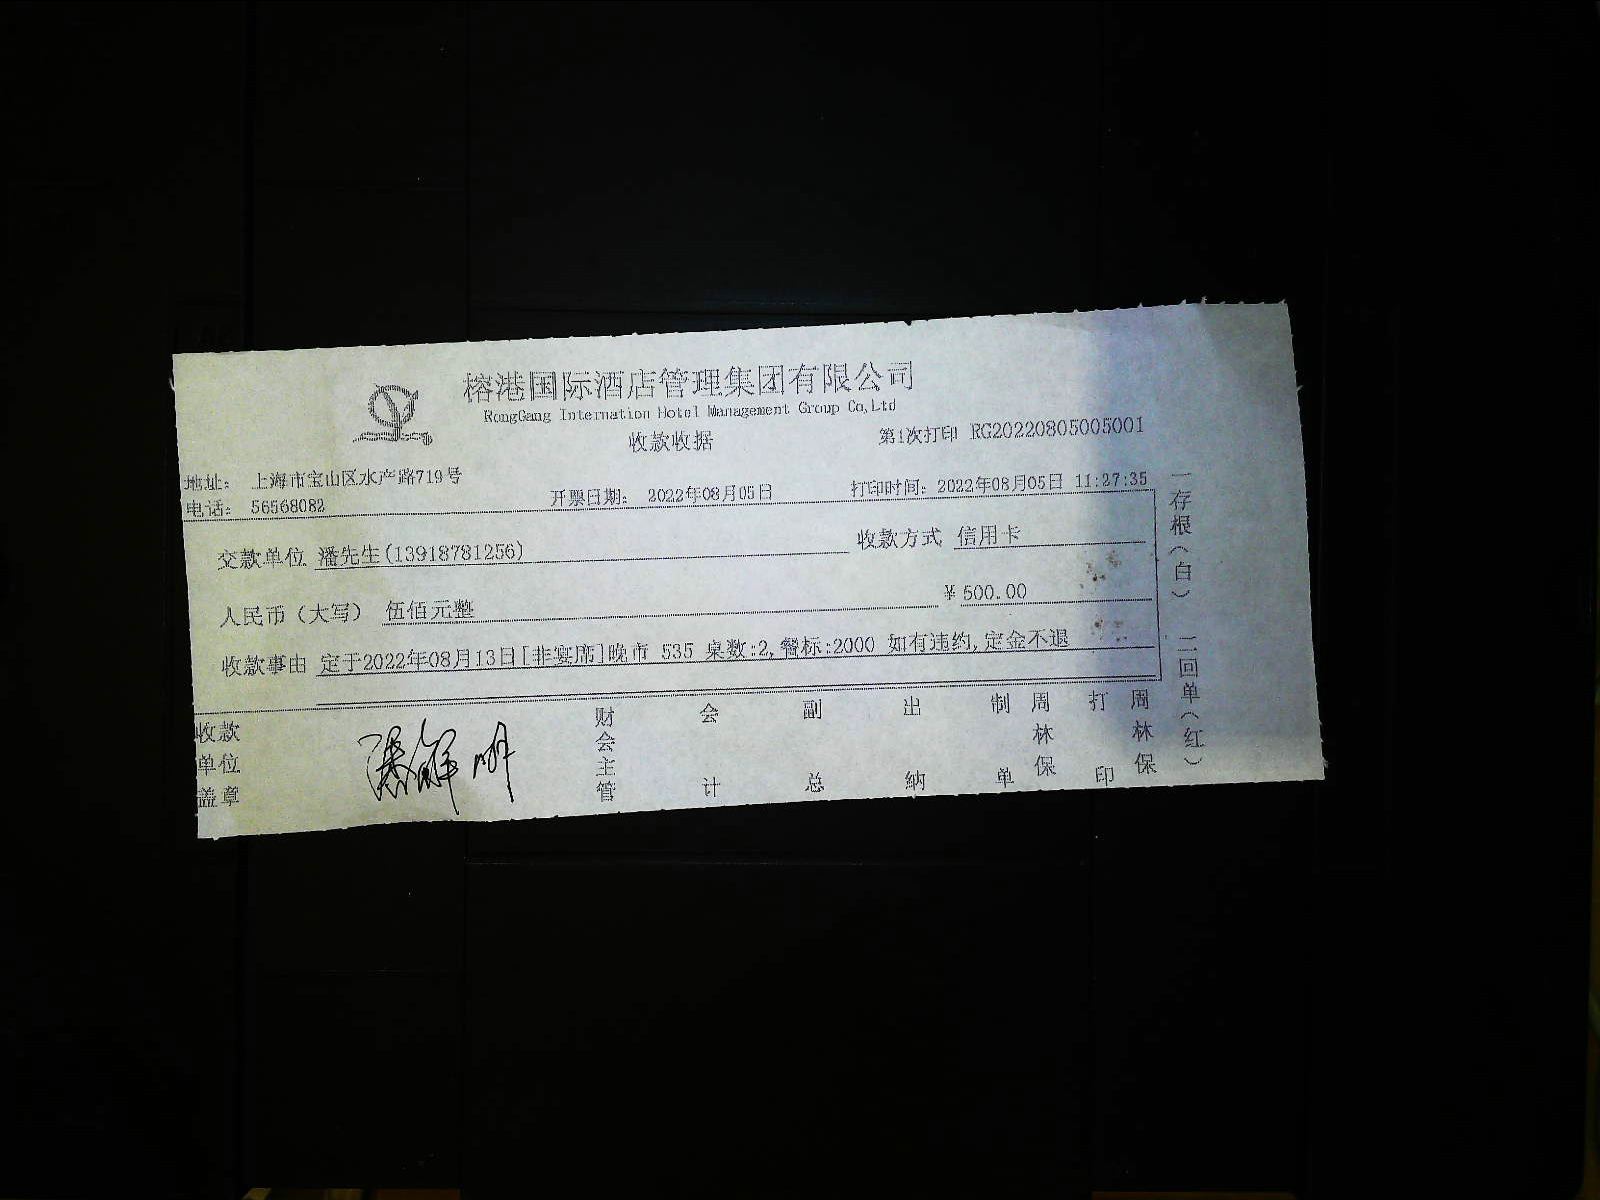 榕港国际酒店管理集团有限公司
RongGang Internation Hotel Management Group Co,Ltd
收款收据
第1次打印 RG20220805005001
地址： 上海市宝山区水产路719号
电话： 56568082
开票日期： 2022年08月05日
打印时间：2022年08月05日 11:27:35
交款单位 潘先生(13918781256)
收款方式 信用卡
人民币（大写） 伍佰元整
￥500.00
收款事由 定于2022年08月13日[非宴席]晚市 535 桌数:2,餐标:2000 如有违约,定金不退
收款单位盖章
财会主管
会计
副总
出纳
制单 周林保
打印 周林保
一存根（白） 二回单（红）